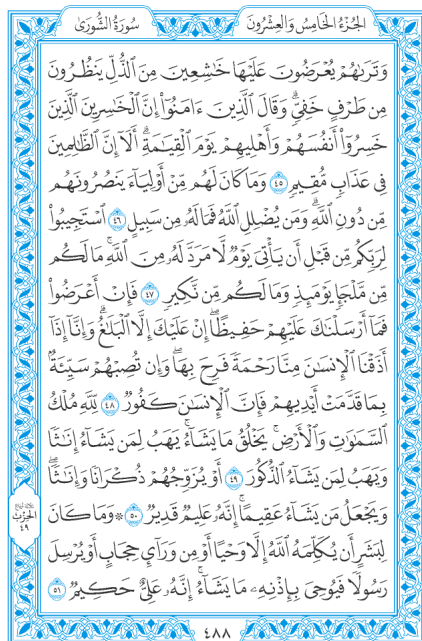 الجُزْءُ الخَامِسُ وَالعِشْرُونَ
سُورَةُ الشُّورَىٰ
وَتَرَىٰهُمْ يُعْرَضُونَ عَلَيْهَا خَٰشِعِينَ مِنَ ٱلذُّلِّ يَنظُرُونَ
مِن طَرْفٍ خَفِىٍّۗ وَقَالَ ٱلَّذِينَ ءَامَنُوٓا۟ إِنَّ ٱلْخَٰسِرِينَ ٱلَّذِينَ
خَسِرُوٓا۟ أَنفُسَهُمْ وَأَهْلِيهِمْ يَوْمَ ٱلْقِيَٰمَةِۗ أَلَآ إِنَّ ٱلظَّٰلِمِينَ
فِى عَذَابٍ مُّقِيمٍ ٤٥ وَمَا كَانَ لَهُم مِّنْ أَوْلِيَآءَ يَنصُرُونَهُم
مِّن دُونِ ٱللَّهِۗ وَمَن يُضْلِلِ ٱللَّهُ فَمَا لَهُۥ مِن سَبِيلٍ ٤٦ ٱسْتَجِيبُوا۟
لِرَبِّكُم مِّن قَبْلِ أَن يَأْتِىَ يَوْمٌ لَّا مَرَدَّ لَهُۥ مِنَ ٱللَّهِۚ مَا لَكُم
مِّن مَّلْجَإٍ يَوْمَئِذٍ وَمَا لَكُم مِّن نَّكِيرٍ ٤٧ فَإِنْ أَعْرَضُوا۟
فَمَآ أَرْسَلْنَٰكَ عَلَيْهِمْ حَفِيظًاۖ إِنْ عَلَيْكَ إِلَّا ٱلْبَلَٰغُۗ وَإِنَّآ إِذَآ
أَذَقْنَا ٱلْإِنسَٰنَ مِنَّا رَحْمَةً فَرِحَ بِهَاۖ وَإِن تُصِبْهُمْ سَيِّئَةٌۢ
بِمَا قَدَّمَتْ أَيْدِيهِمْ فَإِنَّ ٱلْإِنسَٰنَ كَفُورٌ ٤٨ لِّلَّهِ مُلْكُ
ٱلسَّمَٰوَٰتِ وَٱلْأَرْضِۚ يَخْلُقُ مَا يَشَآءُۚ يَهَبُ لِمَن يَشَآءُ إِنَٰثًا
وَيَهَبُ لِمَن يَشَآءُ ٱلذُّكُورَ ٤٩ أَوْ يُزَوِّجُهُمْ ذُكْرَانًا وَإِنَٰثًاۖ
وَيَجْعَلُ مَن يَشَآءُ عَقِيمًاۚ إِنَّهُۥ عَلِيمٌ قَدِيرٌ ٥٠ ۞ وَمَا كَانَ
لِبَشَرٍ أَن يُكَلِّمَهُ ٱللَّهُ إِلَّا وَحْيًا أَوْ مِن وَرَآئِ حِجَابٍ أَوْ يُرْسِلَ
رَسُولًا فَيُوحِىَ بِإِذْنِهِۦ مَا يَشَآءُۚ إِنَّهُۥ عَلِىٌّ حَكِيمٌ ٥١
الحِزْبُ
٤٩
٤٨٨